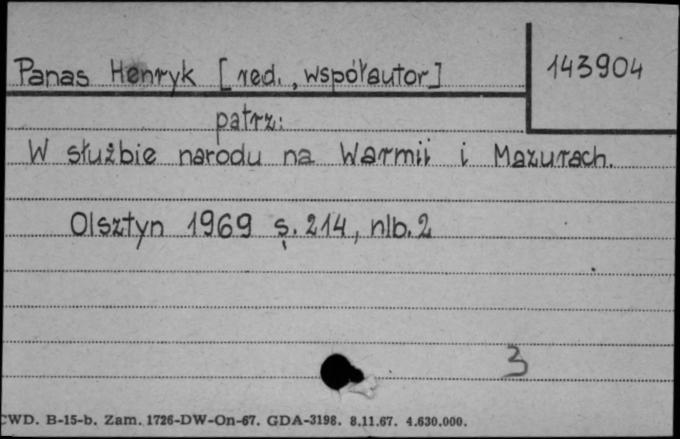 Panas Henryk [red., współautor]
143904
patrz:
W służbie narodu na Warmii i Mazurach.
Olsztyn 1969 s. 214, nlb. 2
3
CWD. B-15-b. Zam. 1726-DW-On-67. GDA-3198. 8.11.67. 4.630.000.